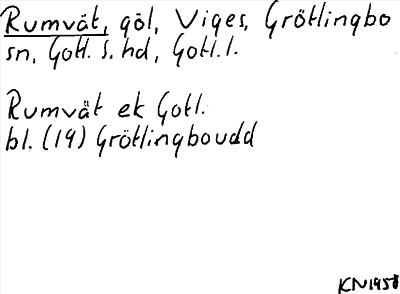 Rumvät, göl, Viges, Grötlingbo
sn, Gotl. S. hd, Gotl. l.
Rumvät ek Gotl.
bl. (19) Grötlingboudd
KN1958